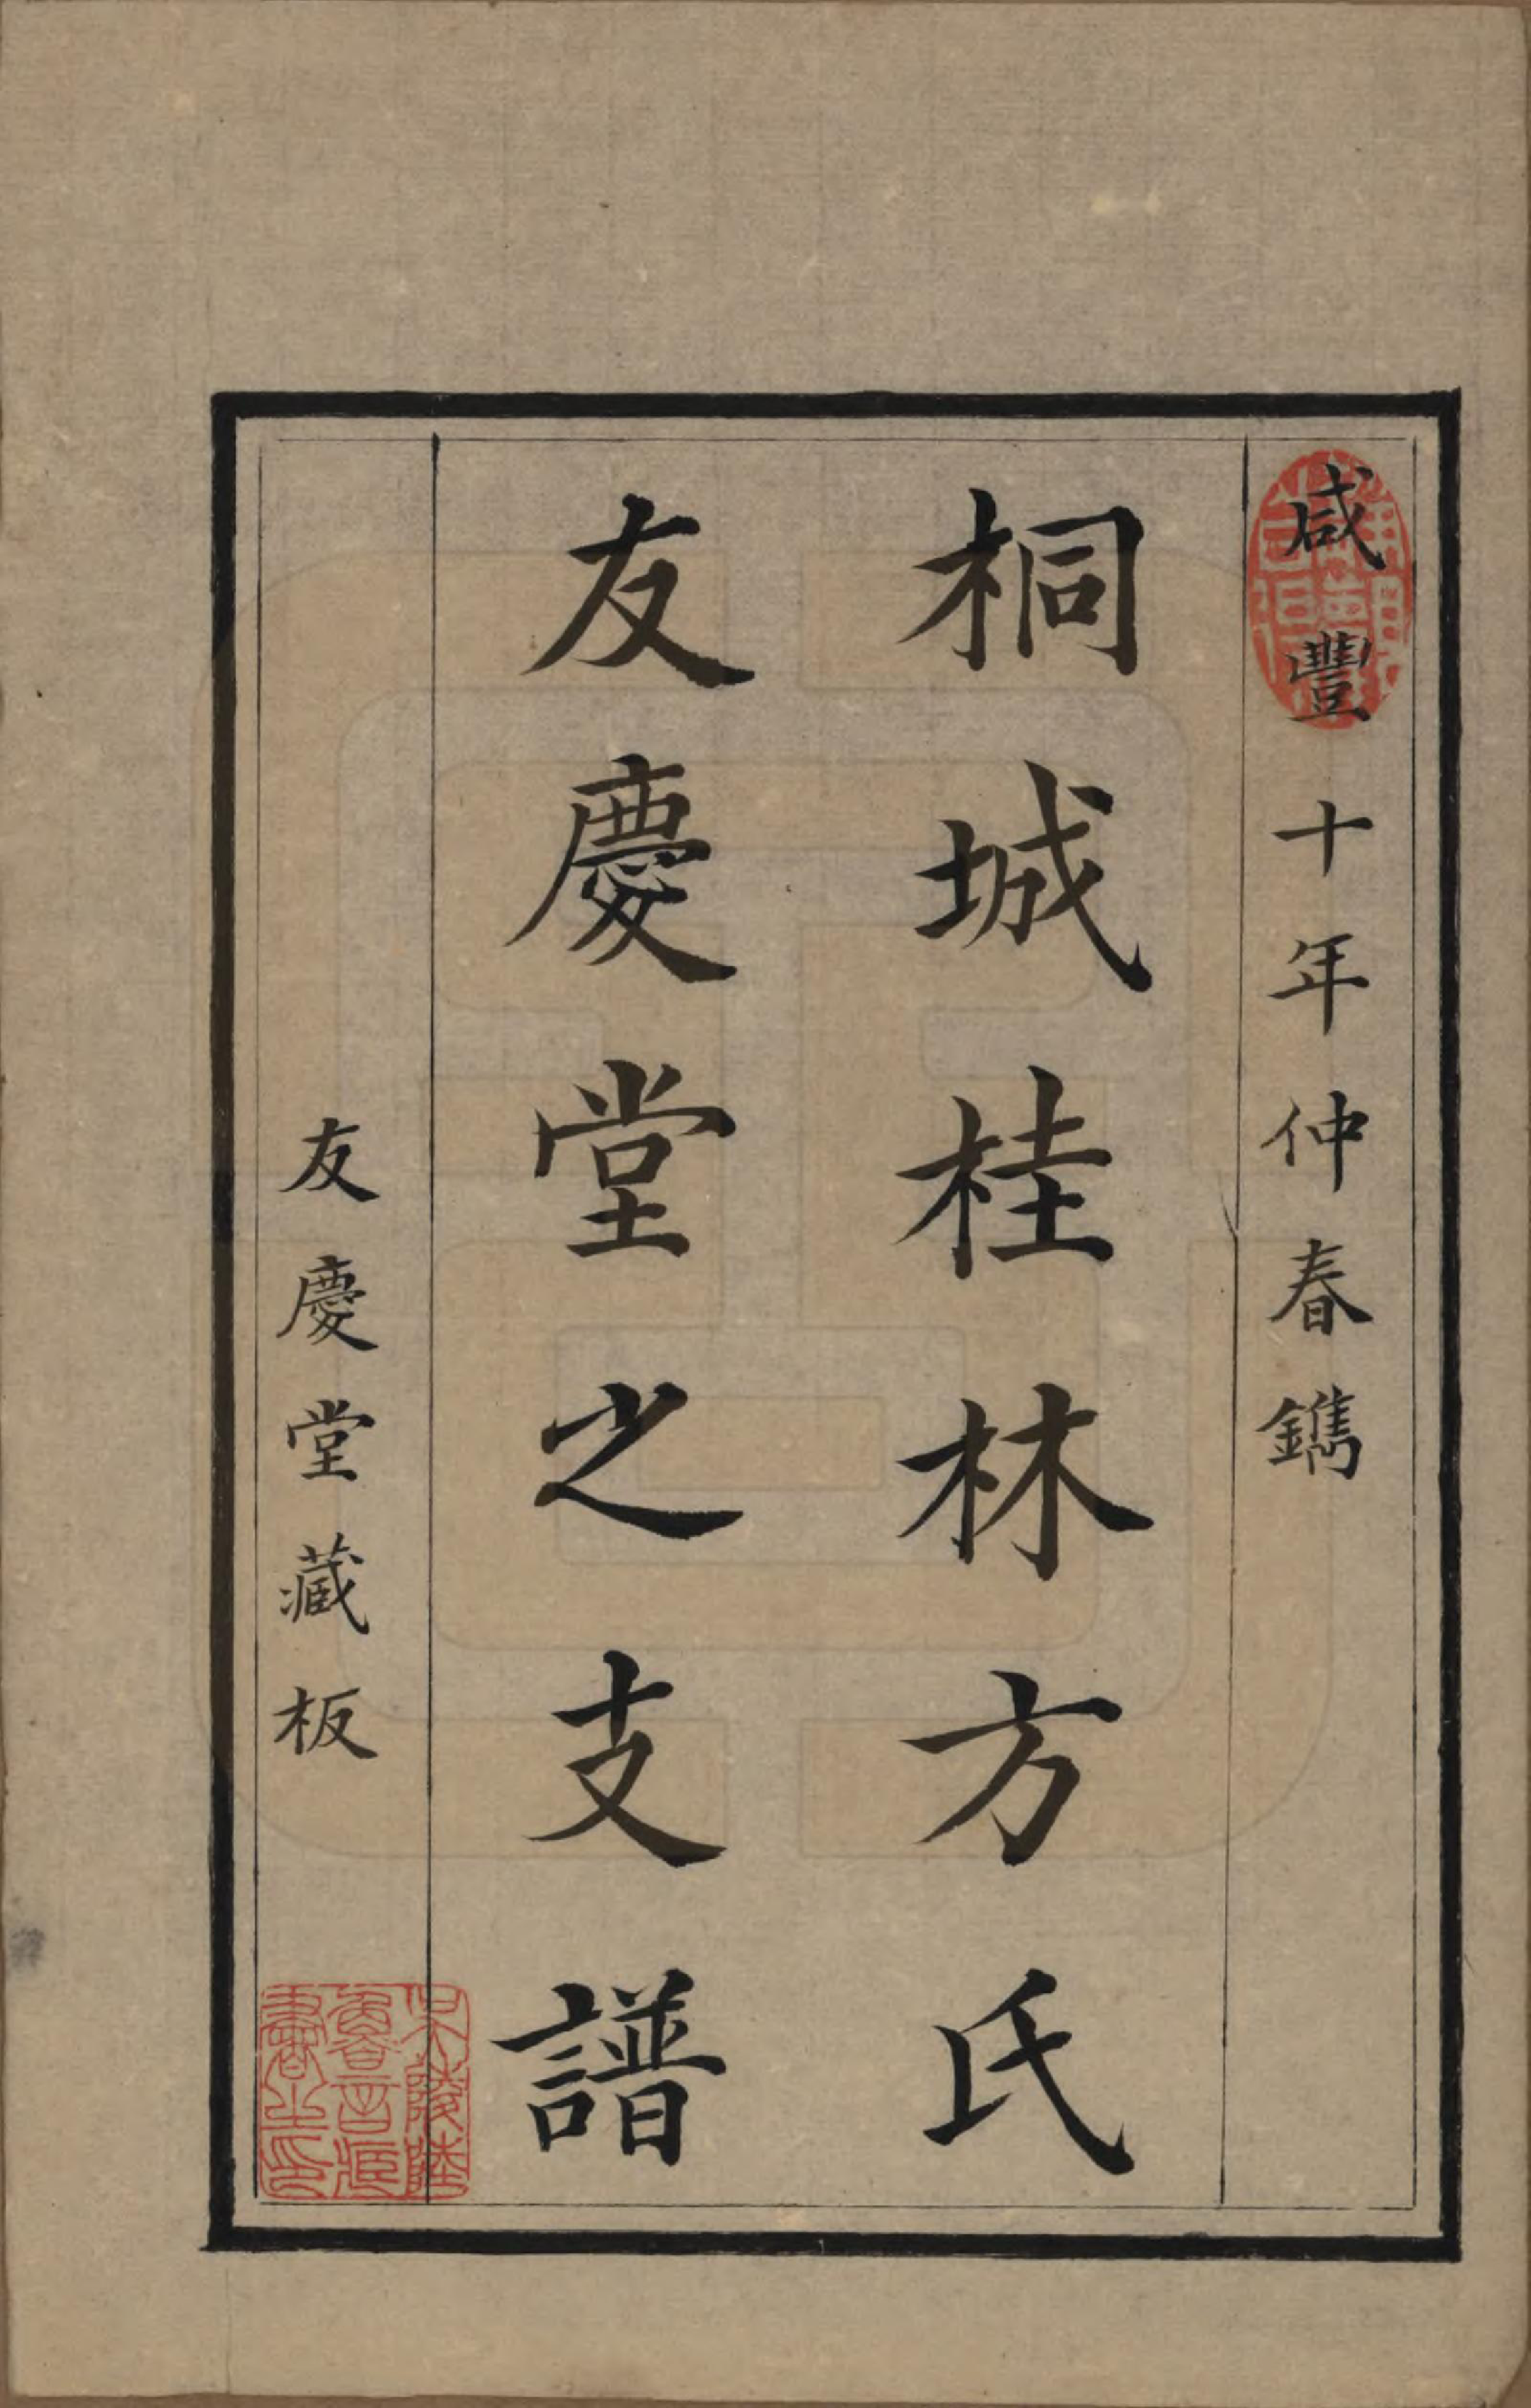 咸豐十年仲春鐫
桐城桂林方氏
友慶堂之支譜
友慶堂藏板